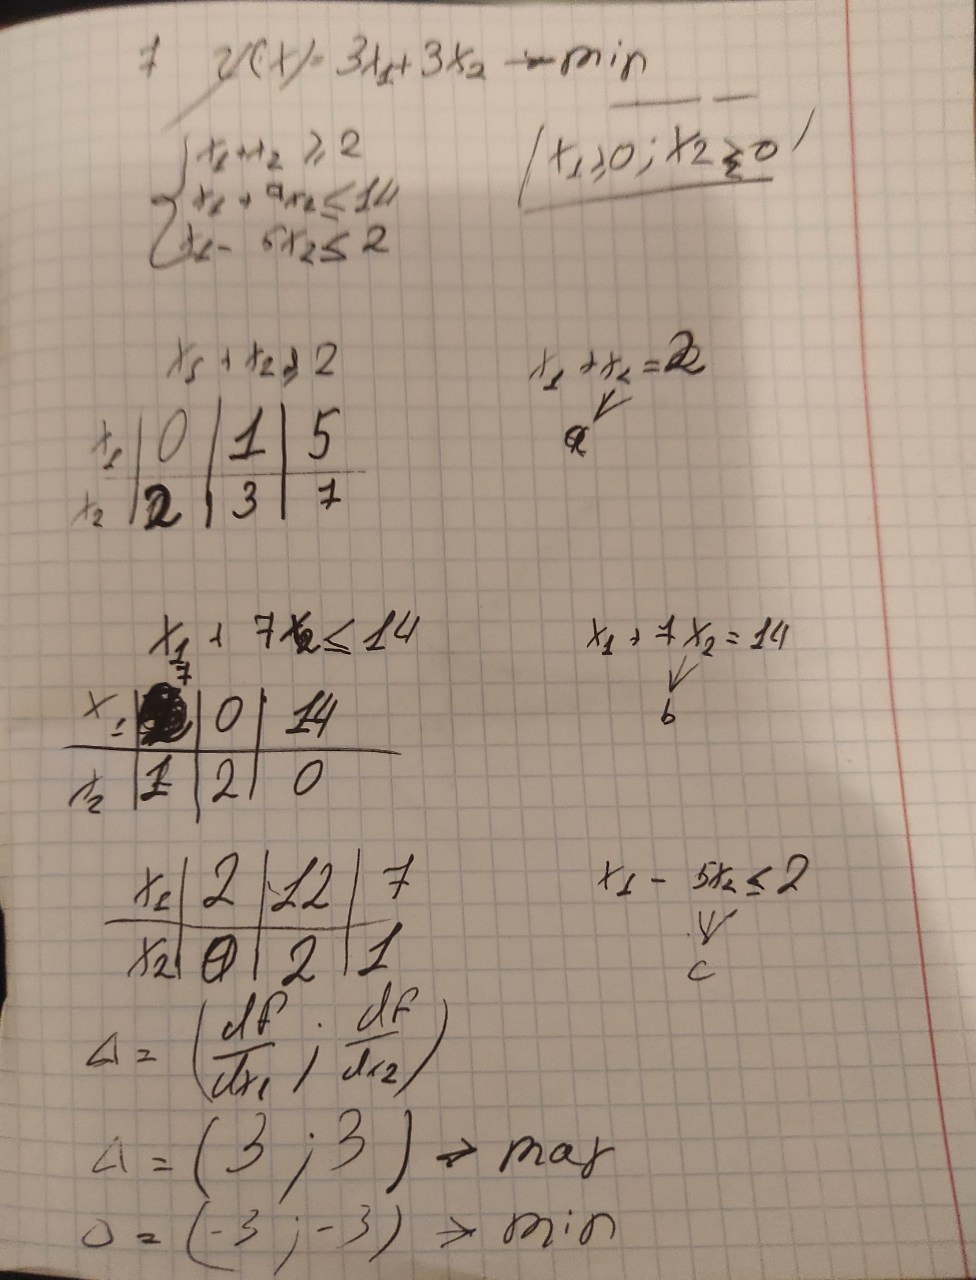 7 Z(x)= 3x₁+3x₂ → min
x₁+x₂ ≥ 2
(x₁≥0; x₂≥0)
x₁ + 7x₂ ≤ 14
x₁ - 5x₂ ≤ 2
x₁ + x₂ ≥ 2
x₁ + x₂ = 2
a
x₁ | 0 | 1 | 5
x₂ | 2 | 3 | 7
x₁ + 7x₂ ≤ 14
x₁ + 7x₂ = 14
b
7
x₁ | 0 | 14
x₂ | 1 | 2 | 0
x₁ | 2 | 12 | 7
x₂ | 0 | 2 | 1
x₁ - 5x₂ ≤ 2
c
Δ = (df/dx₁ ; df/dx₂)
Δ = (3 ; 3) → max
Δ = (-3 ; -3) → min